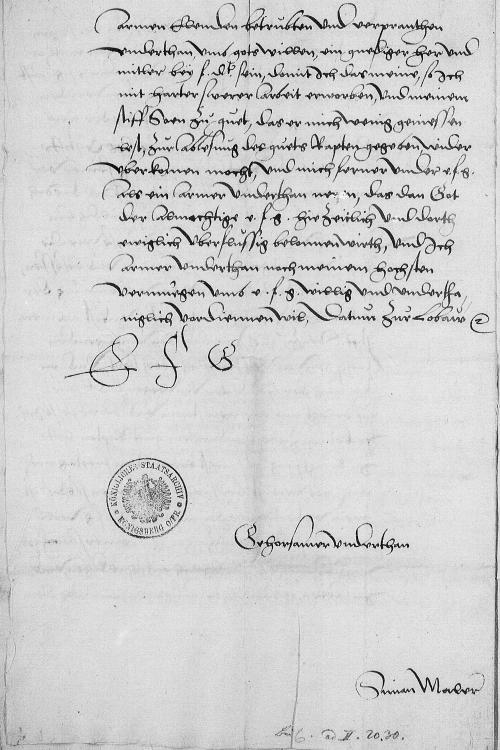 armen Elenden betrubten und verpranthen
underthan umb gots willen, ein gnediger her und
mitler bey f. dt. sein, domit Ich das meine, so Ich
mit harter swerer arbeit erworben, und meinem
stiff Soen zu guet, das er mich wenig geniessen
lest, zur ablesung des guets Rapten gegeben wider
uberkomen mocht, und mich ferner under e f g.
als ein armer underthan, das dan Got
der almechtige e. f. g. hie zeitlich und dorth
ewiglich uberflussig belonnen wirth, und Ich
armer underthan noch meinem hochsten
vermuegen umb e. f. g. willig und undertha
niglich vordiennen wil. Datum zur Lobaw
E F G
KÖNIGLICHES STAATSARCHIV
KÖNIGSBERG O/PR.
Gehorsamer underthan
Simon Maler
ad II. 20. 30.